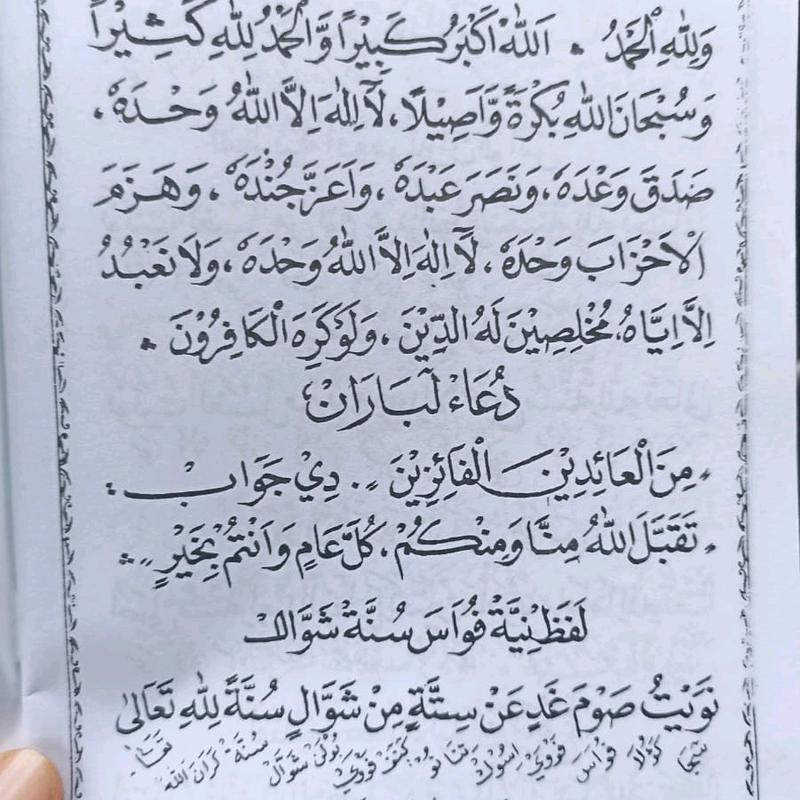 وَلِلّٰهِ الْحَمْدُ * اَللّٰهُ اَكْبَرُ كَبِيْرًا وَّالْحَمْدُ لِلّٰهِ كَثِيْرًا
وَسُبْحَانَ اللّٰهِ بُكْرَةً وَّاَصِيْلًا، لَآ اِلٰهَ اِلَّا اللّٰهُ وَحْدَهٗ،
صَدَقَ وَعْدَهٗ، وَنَصَرَ عَبْدَهٗ، وَاَعَزَّ جُنْدَهٗ، وَهَزَمَ
الْاَحْزَابَ وَحْدَهٗ، لَآ اِلٰهَ اِلَّا اللّٰهُ وَحْدَهٗ، وَلَا نَعْبُدُ
اِلَّا اِيَّاهُ، مُخْلِصِيْنَ لَهُ الدِّيْنَ، وَلَوْ كَرِهَ الْكَافِرُوْنَ *
دُعَاءْ لَبَارَانْ؛
مِنَ الْعَائِدِيْنَ الْفَائِزِيْنَ .. دِيْ جَوَابْ :
تَقَبَّلَ اللّٰهُ مِنَّا وَمِنْكُمْ، كُلَّ عَامٍ وَاَنْتُمْ بِخَيْرٍ
لَفَظْ نِيَّةْ فُوَاسَ سُنَّةْ شَوَّالْ
نَوَيْتُ صَوْمَ غَدٍ عَنْ سِتَّةٍ مِنْ شَوَّالٍ سُنَّةً لِلّٰهِ تَعَالىٰ
فواس اسوك شوال سنة كران الله